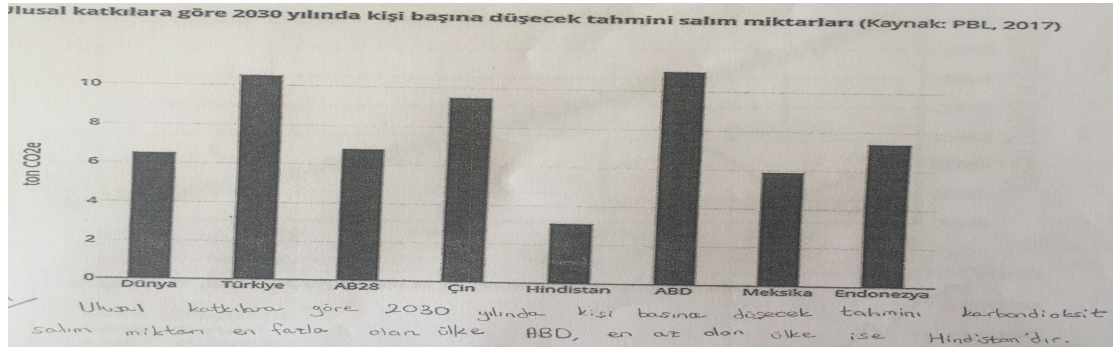 Ulusal katkılara göre 2030 yılında kişi başına düşecek tahmini salım miktarları (Kaynak: PBL, 2017)
ton CO2e
10
8
6
4
2
0
Dünya Türkiye AB28 Çin Hindistan ABD Meksika Endonezya
Ulusal katkılara göre 2030 yılında kişi başına düşecek tahmini karbondioksit
salım miktarı en fazla olan ülke ABD, en az olan ülke ise Hindistan'dır.